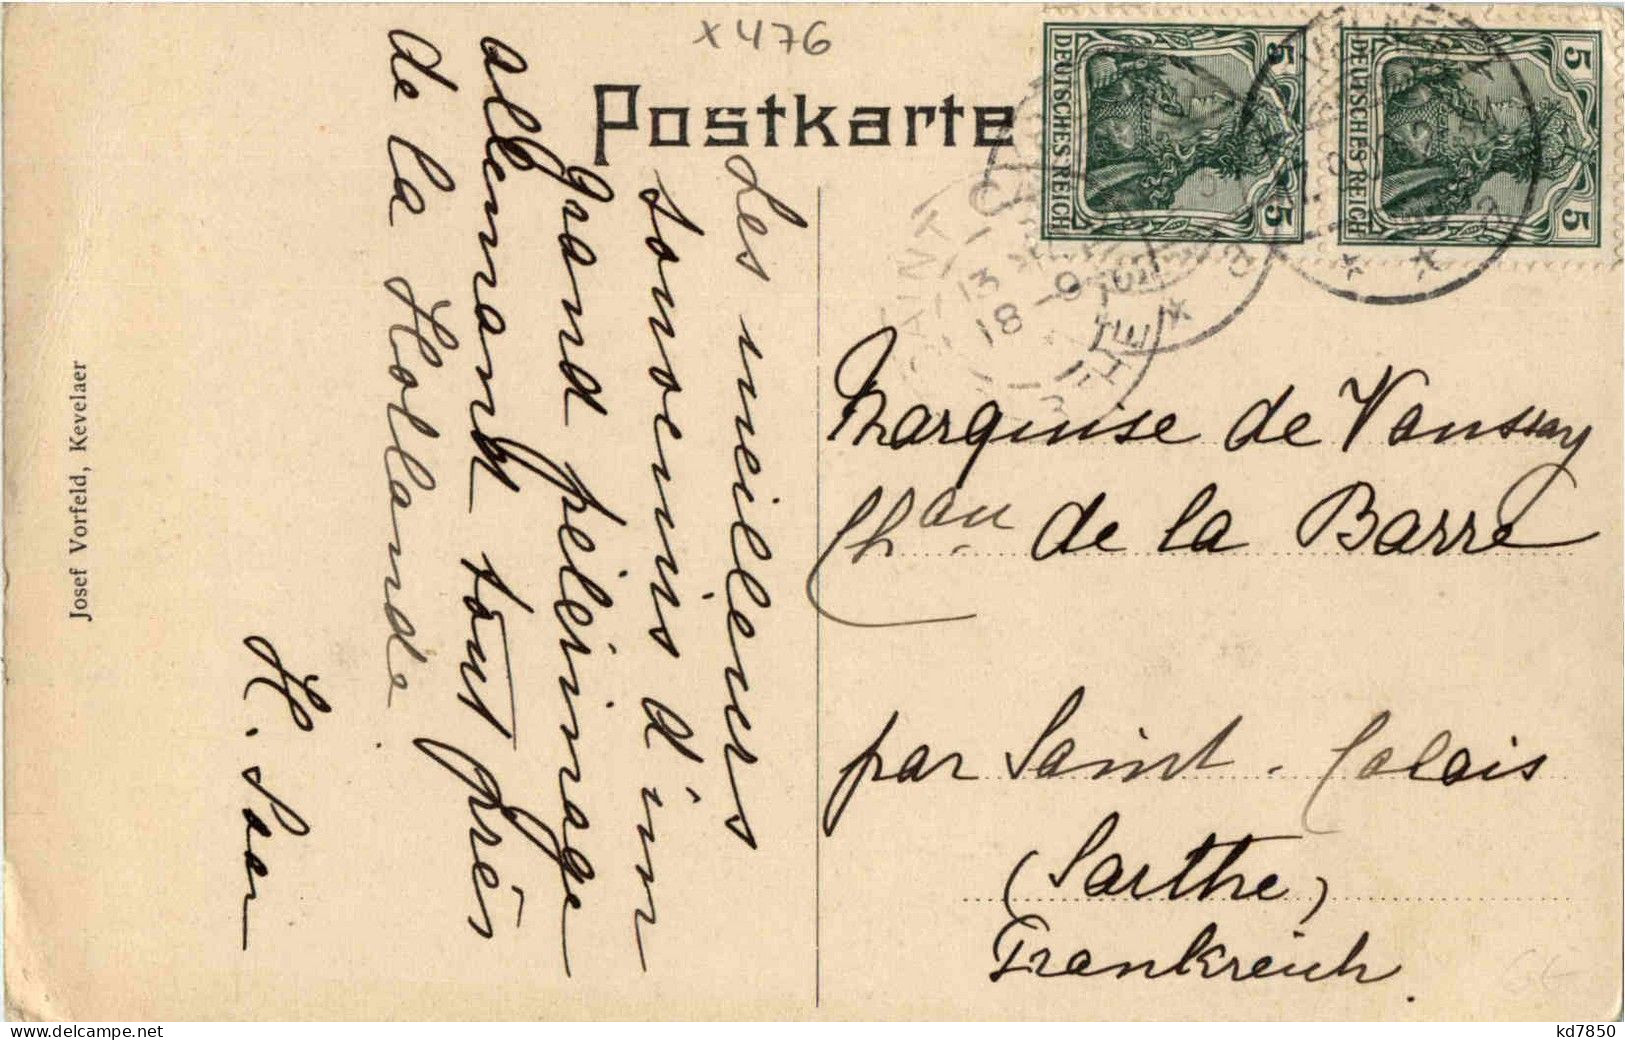 x 476
Postkarte
DEUTSCHES REICH
5
5
DEUTSCHES REICH
5
5
SAINT CALAIS
13
18 - 9
SARTHE
Les meilleurs
souvenirs d'un
grand pélerinage
allemand tout près
de la Hollande
H.
Marquise de Vanssay
Chau de la Barre
par Saint-Calais
(Sarthe)
Frankreich.
Josef Vorfeld, Kevelaer
kd7850